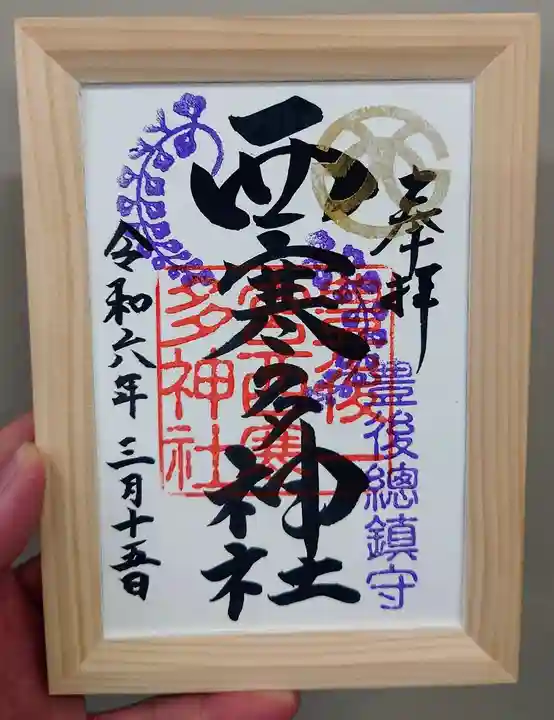 奉拝
豊後總鎮守
西寒多神社
豊後
宮西寒
多神社
令和六年三月十五日